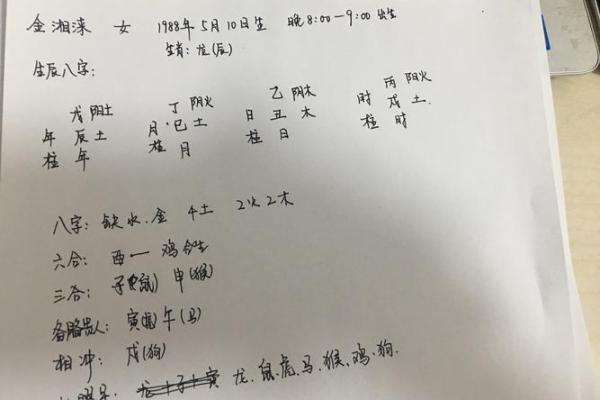 金湘涞 女 1988年5月10日生 晚8:00-9:00出生
生肖:龙(辰)
生辰八字:
戊阳土 丁阴火 乙阴木 丙阳火
年辰土 月·巳土 日丑木 时戌土.
柱年 柱月 柱日 柱时
八字:缺水.金 4土 2火2木
六合:酉一鸡
三合:子(鼠) 申(猴)
贵人:寅(虎)午(马)
相冲:戌(狗)
龙、鼠、虎、马、猴、鸡、狗.